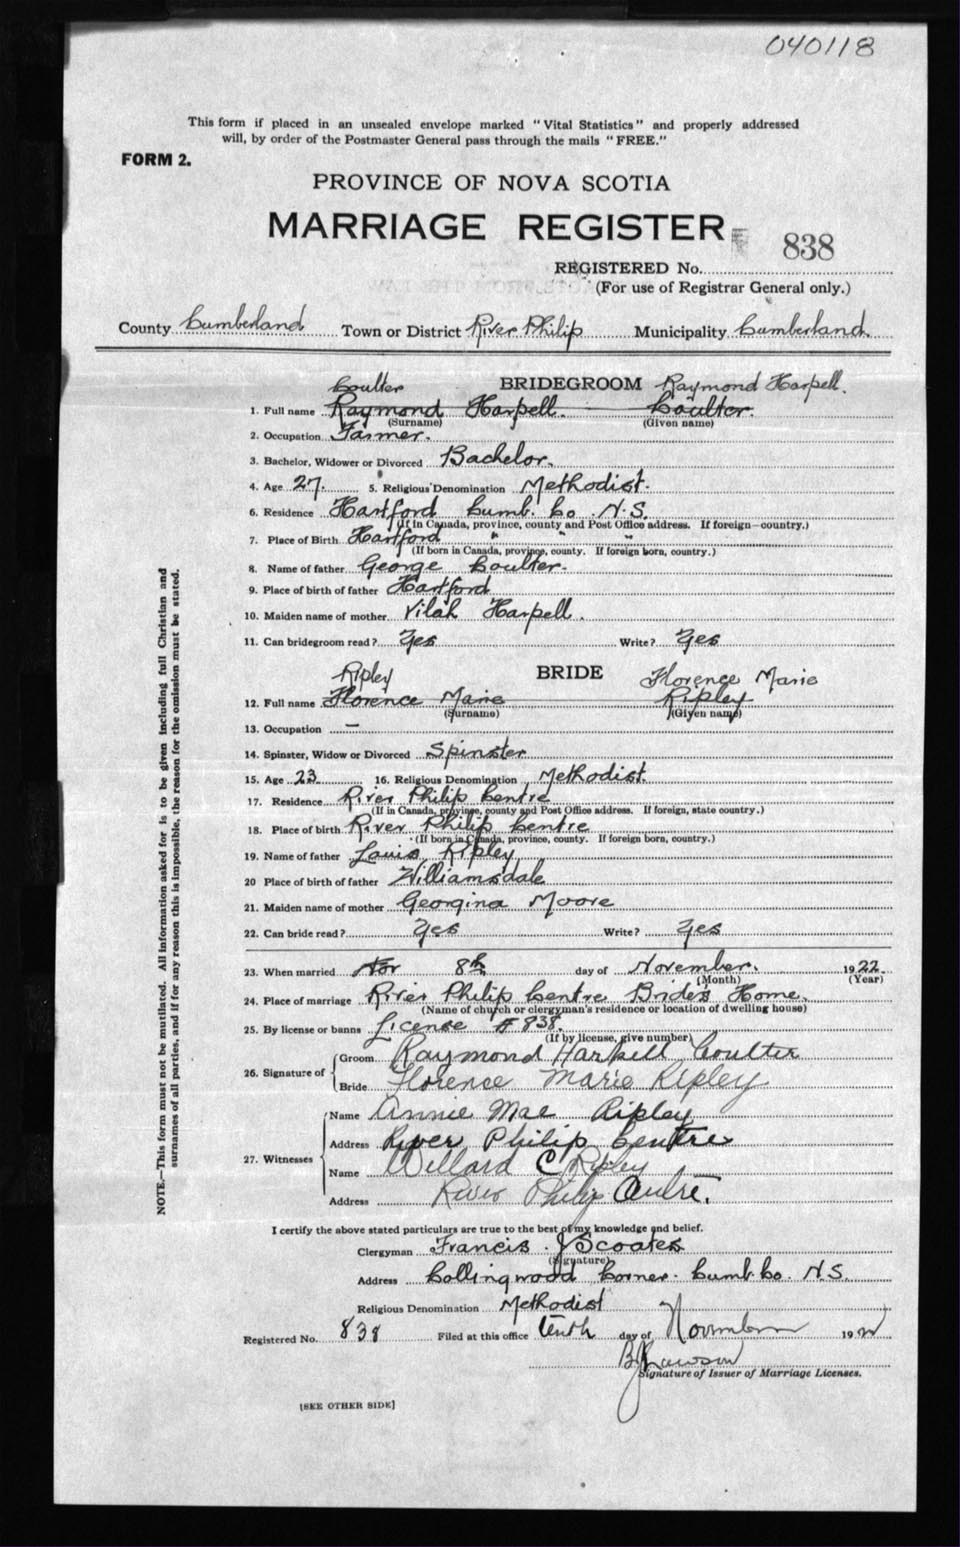 040118
This form if placed in an unsealed envelope marked "Vital Statistics" and properly addressed
will, by order of the Postmaster General pass through the mails "FREE."
FORM 2.
PROVINCE OF NOVA SCOTIA
MARRIAGE REGISTER
838
REGISTERED No.
(For use of Registrar General only.)
County Cumberland Town or District River Philip Municipality Cumberland
Coulter BRIDEGROOM Raymond Harpell.
1. Full name Raymond Harpell. Coulter.
(Surname) (Given name)
2. Occupation Farmer.
3. Bachelor, Widower or Divorced Bachelor.
4. Age 27. 5. Religious Denomination Methodist.
6. Residence Hartford Cumb. Co N.S.
(If in Canada, province, county and Post Office address. If foreign—country.)
7. Place of Birth Hartford " " "
(If born in Canada, province, county. If foreign born, country.)
8. Name of father George Coulter.
9. Place of birth of father Hartford
10. Maiden name of mother Vilah Harpell.
11. Can bridegroom read? Yes Write? Yes
Ripley BRIDE Florence Marie
12. Full name Florence Marie Ripley
(Surname) (Given name)
13. Occupation —
14. Spinster, Widow or Divorced Spinster
15. Age 23 16. Religious Denomination Methodist.
17. Residence River Philip Centre
(If in Canada, province, county and Post Office address. If foreign, state country.)
18. Place of birth River Philip Centre
(If born in Canada, province, county. If foreign born, country.)
19. Name of father Louis Ripley
20 Place of birth of father Williamsdale
21. Maiden name of mother Georgina Moore
22. Can bride read? Yes Write? Yes
23. When married Nov 8th day of November. 1922
(Month) (Year)
24. Place of marriage River Philip Centre Bride's Home.
(Name of church or clergyman's residence or location of dwelling house)
25. By license or banns License # 838.
(If by license, give number)
26. Signature of Groom Raymond Harpell Coulter
Bride Florence Marie Ripley
27. Witnesses Name Annie Mae Ripley
Address River Philip Centre
Name Willard C Ripley
Address River Philip Centre.
I certify the above stated particulars are true to the best of my knowledge and belief.
Clergyman Francis J Scoates
(Signature)
Address Collingwood Corner. Cumb. Co. N.S.
Religious Denomination Methodist
Registered No. 838 Filed at this office tenth day of November 1922
Signature of Issuer of Marriage Licenses.
[SEE OTHER SIDE]
NOTE.—This form must not be mutilated. All information asked for is to be given including full Christian and
surnames of all parties, and if for any reason this is impossible, the reason for the omission must be stated.